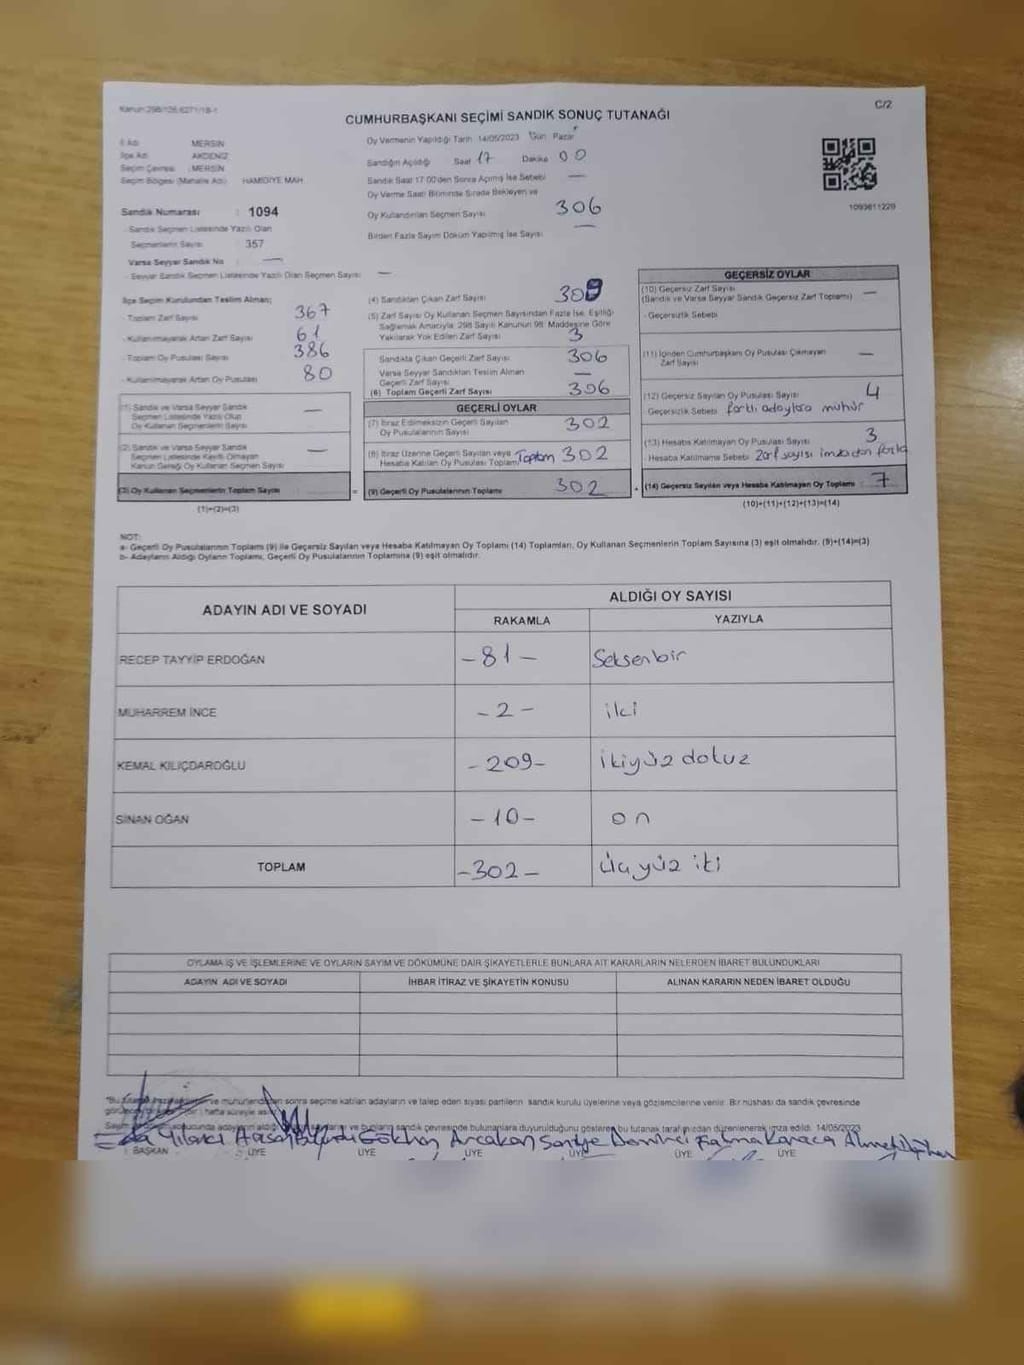 Kanun:298/126,6271/18-1
C/2
CUMHURBAŞKANI SEÇİMİ SANDIK SONUÇ TUTANAĞI
İl Adı MERSİN
İlçe Adı AKDENİZ
Seçim Çevresi : MERSİN
Seçim Bölgesi (Mahalle Adı) HAMİDİYE MAH.
Oy Vermenin Yapıldığı Tarih 14/05/2023 Gün Pazar
Sandığın Açıldığı Saat 17 Dakika 00
Sandık Saat 17:00'den Sonra Açılmış İse Sebebi —
Oy Verme Saati Bitiminde Sırada Bekleyen ve
Oy Kullandırılan Seçmen Sayısı 306
Birden Fazla Sayım Döküm Yapılmış İse Sayısı —
1093611229
Sandık Numarası : 1094
- Sandık Seçmen Listesinde Yazılı Olan
Seçmenlerin Sayısı 357
Varsa Seyyar Sandık No —
- Seyyar Sandık Seçmen Listesinde Yazılı Olan Seçmen Sayısı —
İlçe Seçim Kurulundan Teslim Alınan;
- Toplam Zarf Sayısı 367
- Kullanılmayarak Artan Zarf Sayısı 61
- Toplam Oy Pusulası Sayısı 386
- Kullanılmayarak Artan Oy Pusulası 80
(1) Sandık ve Varsa Seyyar Sandık
Seçmen Listesinde Yazılı Olup
Oy Kullanan Seçmenlerin Sayısı —
(2) Sandık ve Varsa Seyyar Sandık
Seçmen Listesinde Kayıtlı Olmayan
Kanun Gereği Oy Kullanan Seçmen Sayısı —
(3) Oy Kullanan Seçmenlerin Toplam Sayısı
(1)+(2)=(3)
(4) Sandıktan Çıkan Zarf Sayısı
(5) Zarf Sayısı Oy Kullanan Seçmen Sayısından Fazla İse, Eşitliği
Sağlamak Amacıyla; 298 Sayılı Kanunun 98. Maddesine Göre
Yakılarak Yok Edilen Zarf Sayısı 3
Sandıkta Çıkan Geçerli Zarf Sayısı 306
Varsa Seyyar Sandıktan Teslim Alınan
Geçerli Zarf Sayısı —
(6) Toplam Geçerli Zarf Sayısı 306
GEÇERLİ OYLAR
(7) İtiraz Edilmeksizin Geçerli Sayılan
Oy Pusulalarının Sayısı 302
(8) İtiraz Üzerine Geçerli Sayılan veya
Hesaba Katılan Oy Pusulası Toplamı Toplam 302
= (9) Geçerli Oy Pusulalarının Toplamı 302
GEÇERSİZ OYLAR
(10) Geçersiz Zarf Sayısı
(Sandık ve Varsa Seyyar Sandık Geçersiz Zarf Toplamı) —
- Geçersizlik Sebebi
(11) İçinden Cumhurbaşkanı Oy Pusulası Çıkmayan
Zarf Sayısı —
(12) Geçersiz Sayılan Oy Pusulası Sayısı 4
- Geçersizlik Sebebi farklı adaylara mühür
(13) Hesaba Katılmayan Oy Pusulası Sayısı 3
- Hesaba Katılmama Sebebi Zarf sayısı imzadan fazla
+ (14) Geçersiz Sayılan veya Hesaba Katılmayan Oy Toplamı 7
(10)+(11)+(12)+(13)=(14)
NOT:
a- Geçerli Oy Pusulalarının Toplamı (9) ile Geçersiz Sayılan veya Hesaba Katılmayan Oy Toplamı (14) Toplamları, Oy Kullanan Seçmenlerin Toplam Sayısına (3) eşit olmalıdır. (9)+(14)=(3)
b- Adayların Aldığı Oyların Toplamı, Geçerli Oy Pusulalarının Toplamına (9) eşit olmalıdır.
ADAYIN ADI VE SOYADI
ALDIĞI OY SAYISI
RAKAMLA YAZIYLA
RECEP TAYYİP ERDOĞAN -81- Seksenbir
MUHARREM İNCE -2- iki
KEMAL KILIÇDAROĞLU -209- ikiyüz dokuz
SİNAN OĞAN -10- on
TOPLAM -302- Üçyüz iki
OYLAMA İŞ VE İŞLEMLERİNE VE OYLARIN SAYIM VE DÖKÜMÜNE DAİR ŞİKAYETLERLE BUNLARA AİT KARARLARIN NELERDEN İBARET BULUNDUKLARI
ADAYIN ADI VE SOYADI İHBAR İTİRAZ VE ŞİKAYETİN KONUSU ALINAN KARARIN NEDEN İBARET OLDUĞU
sonra seçime katılan adayların ve talep eden siyasi partilerin sandık kurulu üyelerine veya gözlemcilerine verilir. Bir nüshası da sandık çevresinde
bir hafta süreyle
sandık çevresinde bulunanlara duyurulduğunu gösteren bu tutanak tarafımızdan düzenlenerek imza edildi. 14/05/2023
Gökhan Arcakan Demirci Fatma Karaca
BAŞKAN ÜYE ÜYE ÜYE ÜYE ÜYE ÜYE